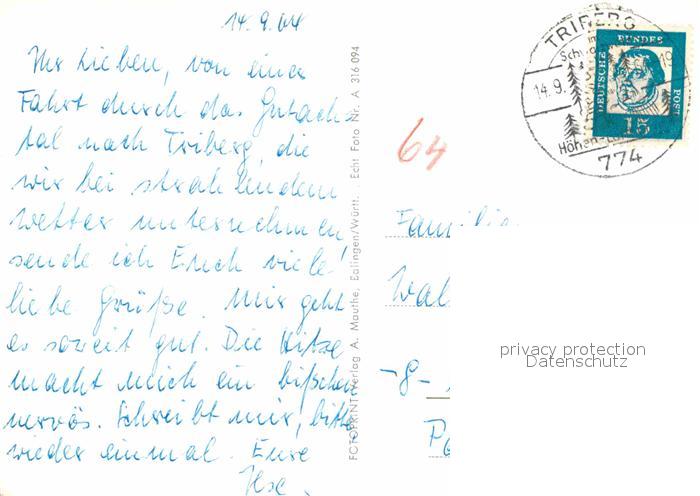 14.9.64
Ihr Lieben, von einer
Fahrt durch das Gutach-
tal nach Triberg, die
wir bei strahlendem
Wetter unternehmen,
sende ich Euch viele
liebe Grüße. Mir geht
es soweit gut. Die Hitze
macht mich ein bißchen
nervös. Schreibt mir, bitte,
wieder einmal. Eure
Ilse.
FOTOPRINT-Verlag A. Mauthe, Eßlingen/Württ. Echt Foto Nr. A 316 094
64
TRIBERG
im
14.9.
19
774
DEUTSCHE
BUNDES
POST
15
Familie
Wal
-8-
privacy protection
Datenschutz